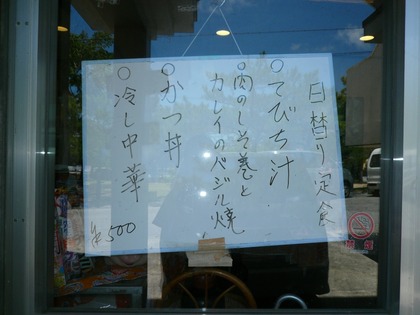 日替り定食
○てびち汁
○肉のしそ巻と
カレイのバジル焼
○かつ丼
○冷し中華
¥500